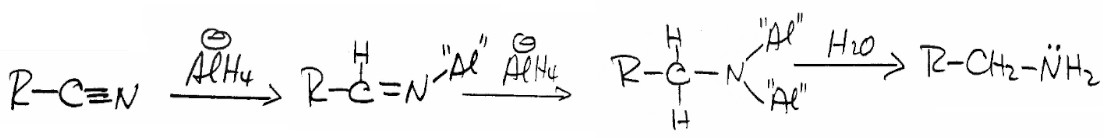 R-C≡N ⊖AlH4 R-C(H)=N-"Al" ⊖AlH4 R-C(H)(H)-N("Al")("Al") H2O R-CH2-N̈H2